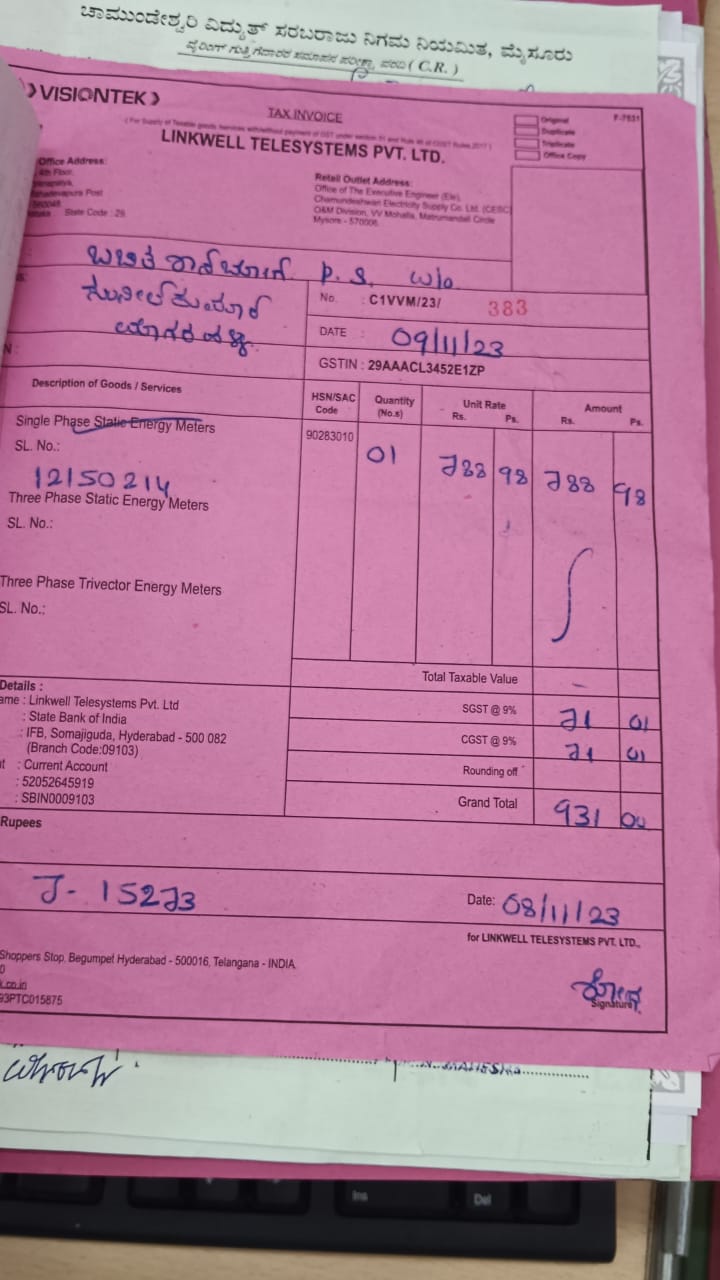 ಚಾಮುಂಡೇಶ್ವರಿ ವಿದ್ಯುತ್ ಸರಬರಾಜು ನಿಗಮ ನಿಯಮಿತ, ಮೈಸೂರು
ವೈರಿಂಗ್ ಗುತ್ತಿಗೆದಾರರ ಸಮಾಪನ ಪರೀಕ್ಷಾ ವರದಿ ( C.R. )
VISIONTEK
TAX INVOICE
LINKWELL TELESYSTEMS PVT. LTD.
Original
Duplicate
Triplicate
Office Copy
F-7531
Office Address:
4th Floor,
Post
560048
State Code : 29
Retail Outlet Address:
Office of The Executive Engineer (Ele),
Chamundeshwari Electricity Supply Co. Ltd. (CESC)
O&M Division, VV Mohalla, Matrumandali Circle
Mysore - 570006
P. S, W/o
ಸುನೀಲ್ ಕುಮಾರ್
No. : C1VVM/23/ 383
DATE : 09/11/23
GSTIN : 29AAACL3452E1ZP
Description of Goods / Services
HSN/SAC Code
Quantity (No.s)
Unit Rate Rs. Ps.
Amount Rs. Ps.
Single Phase Static Energy Meters
90283010 01 788 98 788 98
SL. No.:
12150214
Three Phase Static Energy Meters
SL. No.:
Three Phase Trivector Energy Meters
SL. No.:
Total Taxable Value -
SGST @ 9% 71 01
CGST @ 9% 71 01
Rounding off
Grand Total 931 00
Details :
ame : Linkwell Telesystems Pvt. Ltd
: State Bank of India
: IFB, Somajiguda, Hyderabad - 500 082
(Branch Code:09103)
t : Current Account
: 52052645919
: SBIN0009103
Rupees
J- 15273
Date: 08/11/23
for LINKWELL TELESYSTEMS PVT. LTD.,
Shoppers Stop, Begumpet Hyderabad - 500016, Telangana - INDIA
0
k.co.in
93PTC015875
Signature
Ins
Del